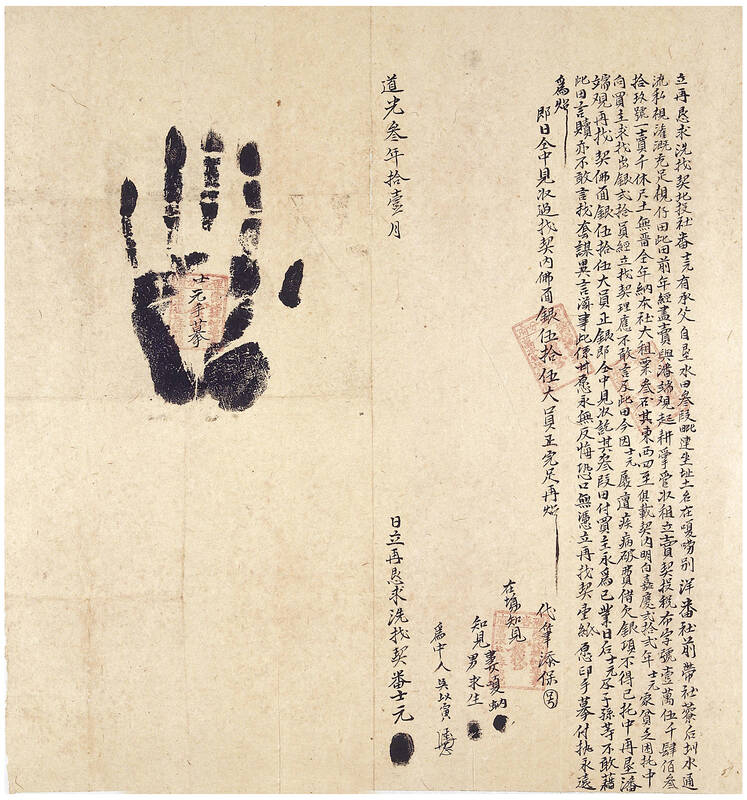 立再恳求洗找契北投社番士元有承父自垦水田叁段毗連坐址土名在嗄嘮别洋番社前带社藔后圳水通
流私梘灌溉充足梘仔田此田前年經盡賣與潘端观起耕掌管收租立賣契投税布字號壹萬伍千肆佰叁
拾玖號一賣千休尺土無晋全年納本社大租粟叁石其東西四至俱載契内明白嘉慶贰拾贰年士元家貧乏困托中
向買主求找出銀贰拾員經立找契理應不敢言及此田今因士元屢遭疾病破費借欠銀項不得已托中再恳潘
端观再找契佛面銀伍拾伍大員正銀即仝中見收訖其叁段田付買主永為己業日后士元及子孫等不敢藉
此田言贖亦不敢言找套謀異言滋事此係甘愿永無反悔恐口無憑立再找契壹紙愿印手摹付执永遠
為炤
即日仝中見收過找契内佛面銀伍拾伍大員正完足再炤
代筆添保
在塲知見妻嗄蚋
知見男求生
為中人吳以寅
道光叁年拾壹月
日立再恳求洗找契番士元
士元手摹